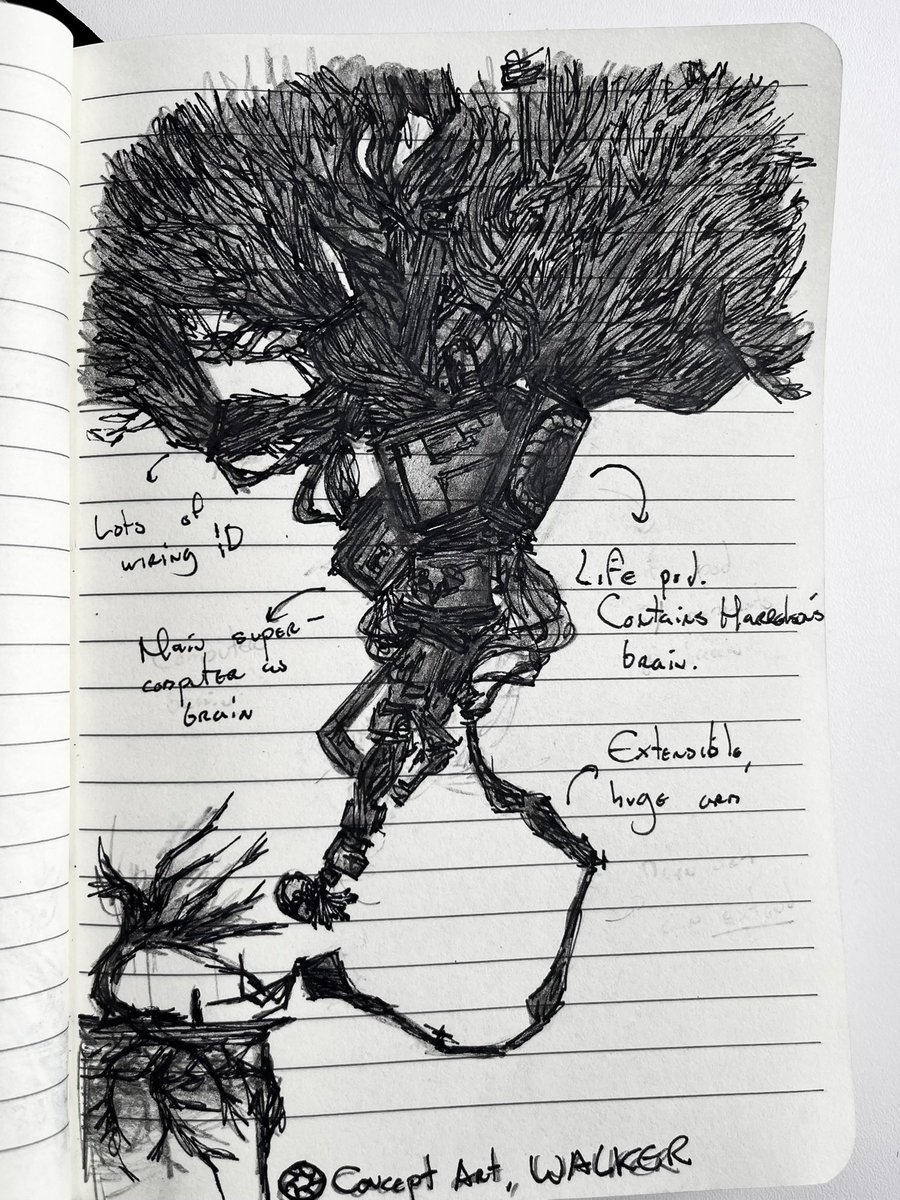 Lots of
wiring !D
Main super-
computer as
brain
Life pod.
Contains Harrdon's
brain.
Extensible,
huge arm
Concept Art, WALKER